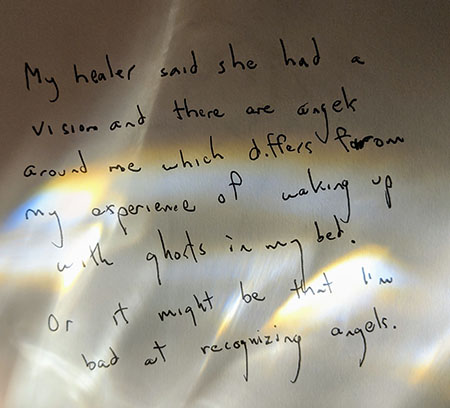 My healer said she had a
vision and there are angels
around me which differs from
my experience of waking up
with ghosts in my bed.
Or it might be that I'm
bad at recognizing angels.